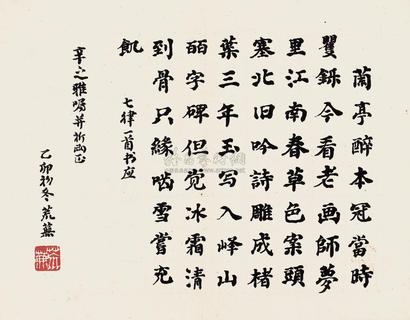 蘭亭醉本冠當時
矍鑠今看老画師夢
里江南春草色案頭
塞北旧吟詩雕成楮
葉三年玉写入峄山
皕字碑但觉冰霜清
到骨只緣啮雪嘗充
飢
七律一首书应
辛之雅嘱并祈两正
乙卯初冬荒蕪